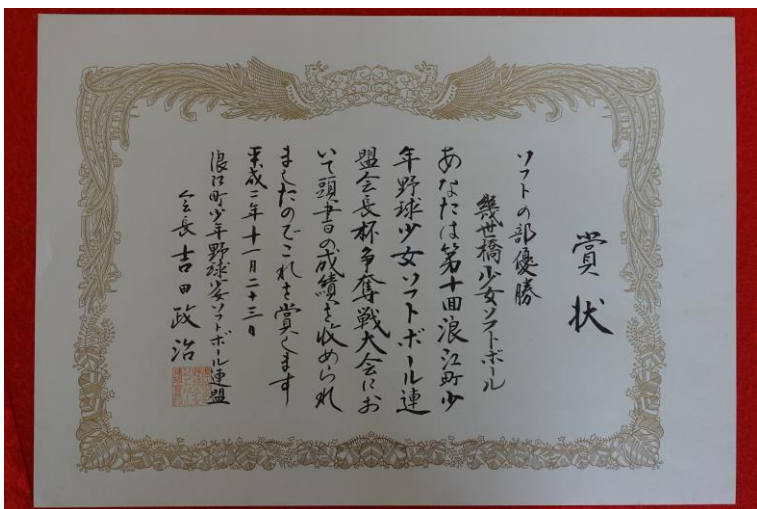 賞状
ソフトの部優勝
幾世橋少女ソフトボール
あなたは第十回浪江町少
年野球少女ソフトボール連
盟会長杯争奪戦大会にお
いて頭書の成績を収められ
ましたのでこれを賞します
平成二年十一月二十三日
浪江町少年野球少女ソフトボール連盟
会長吉田政治